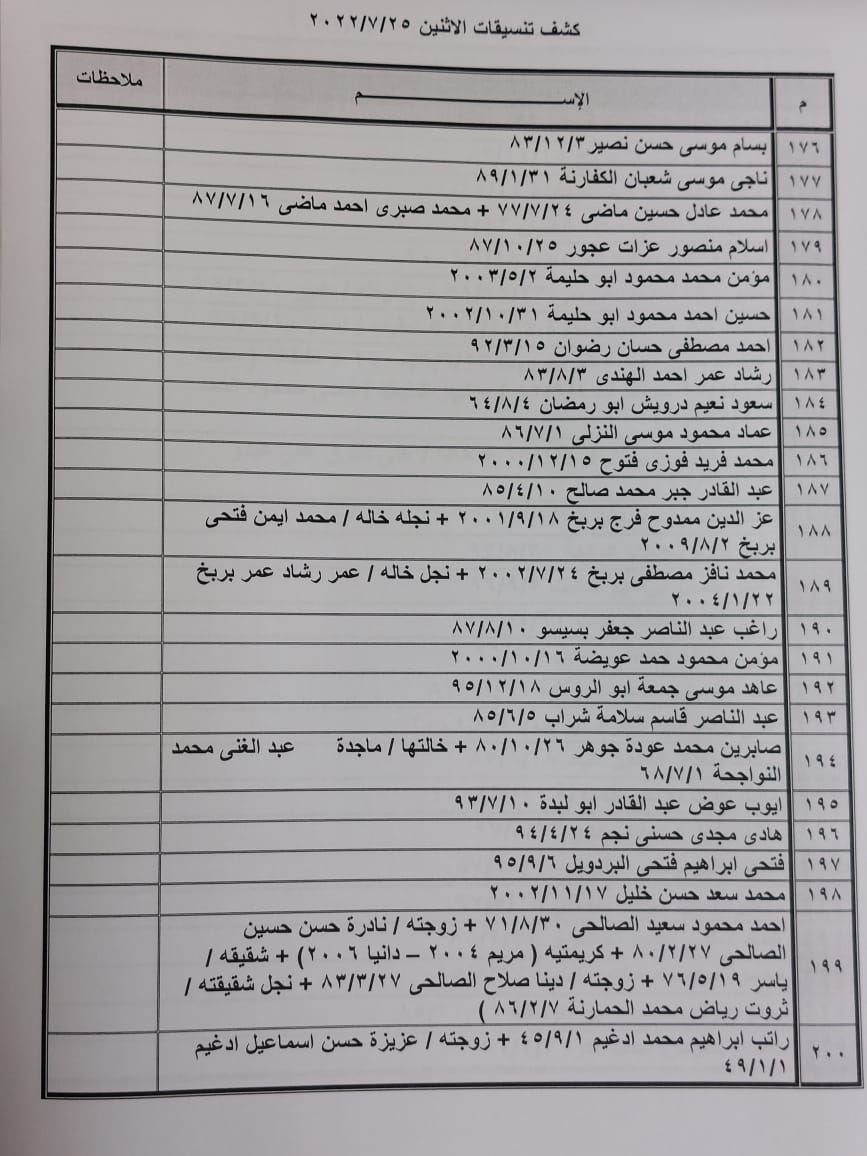 كشف تنسيقات الاثنين ٢٠٢٢/٧/٢٥
م الإســـــــــــــــــــم ملاحظات
١٧٦ بسام موسى حسن نصير ٨٣/١٢/٣
١٧٧ ناجى موسى شعبان الكفارنة ٨٩/١/٣١
١٧٨ محمد عادل حسين ماضى ٧٧/٧/٢٤ + محمد صبرى احمد ماضى ٨٧/٧/١٦
١٧٩ اسلام منصور عزات عجور ٨٧/١٠/٢٥
١٨٠ مؤمن محمد محمود ابو حليمة ٢٠٠٣/٥/٢
١٨١ حسين احمد محمود ابو حليمة ٢٠٠٢/١٠/٣١
١٨٢ احمد مصطفى حسان رضوان ٩٢/٣/١٥
١٨٣ رشاد عمر احمد الهندى ٨٣/٨/٣
١٨٤ سعود نعيم درويش ابو رمضان ٦٤/٨/٤
١٨٥ عماد محمود موسى النزلى ٨٦/٧/١
١٨٦ محمد فريد فوزى فتوح ٢٠٠٠/١٢/١٥
١٨٧ عبد القادر جبر محمد صالح ٨٥/٤/١٠
١٨٨ عز الدين ممدوح فرج بربخ ٢٠٠١/٩/١٨ + نجله خاله / محمد ايمن فتحى
بربخ ٢٠٠٩/٨/٢
١٨٩ محمد نافز مصطفى بربخ ٢٠٠٢/٧/٢٤ + نجل خاله / عمر رشاد عمر بربخ
٢٠٠٤/١/٢٢
١٩٠ راغب عبد الناصر جعفر بسيسو ٨٧/٨/١٠
١٩١ مؤمن محمود حمد عويضة ٢٠٠٠/١٠/١٦
١٩٢ عاهد موسى جمعة ابو الروس ٩٥/١٢/١٨
١٩٣ عبد الناصر قاسم سلامة شراب ٨٥/٦/٥
١٩٤ صابرين محمد عودة جوهر ٨٠/١٠/٢٦ + خالتها / ماجدة عبد الغنى محمد
النواجحة ٦٨/٧/١
١٩٥ ايوب عوض عبد القادر ابو لبدة ٩٣/٧/١٠
١٩٦ هادى مجدى حسنى نجم ٩٤/٤/٢٤
١٩٧ فتحى ابراهيم فتحى البردويل ٩٥/٩/٦
١٩٨ محمد سعد حسن خليل ٢٠٠٢/١١/١٧
١٩٩ احمد محمود سعيد الصالحى ٧١/٨/٣٠ + زوجته / نادرة حسن حسين
الصالحى ٨٠/٢/٢٧ + كريمتيه ( مريم ٢٠٠٤ – دانيا ٢٠٠٦) + شقيقه /
ياسر ٧٦/٥/١٩ + زوجته / دينا صلاح الصالحى ٨٣/٣/٢٧ + نجل شقيقته /
ثروت رياض محمد الحمارنة ٨٦/٢/٧ )
٢٠٠ راتب ابراهيم محمد ادغيم ٤٥/٩/١ + زوجته / عزيزة حسن اسماعيل ادغيم
٤٩/١/١